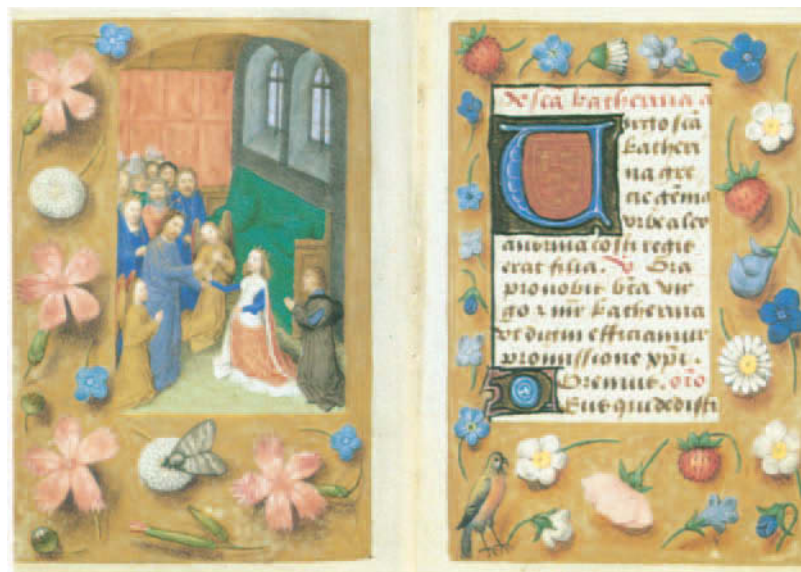 De scā katherina a
Uirgo scā
katheri
na gre
cie gēma
vrbe alex
andrina costi regis
erat filia. V Ora
pro nobis bt̄a vir
go z mr̄ katherina
vt digni efficiamur
promissione xp̄i.
Oremus. oro
Deus qui dedisti